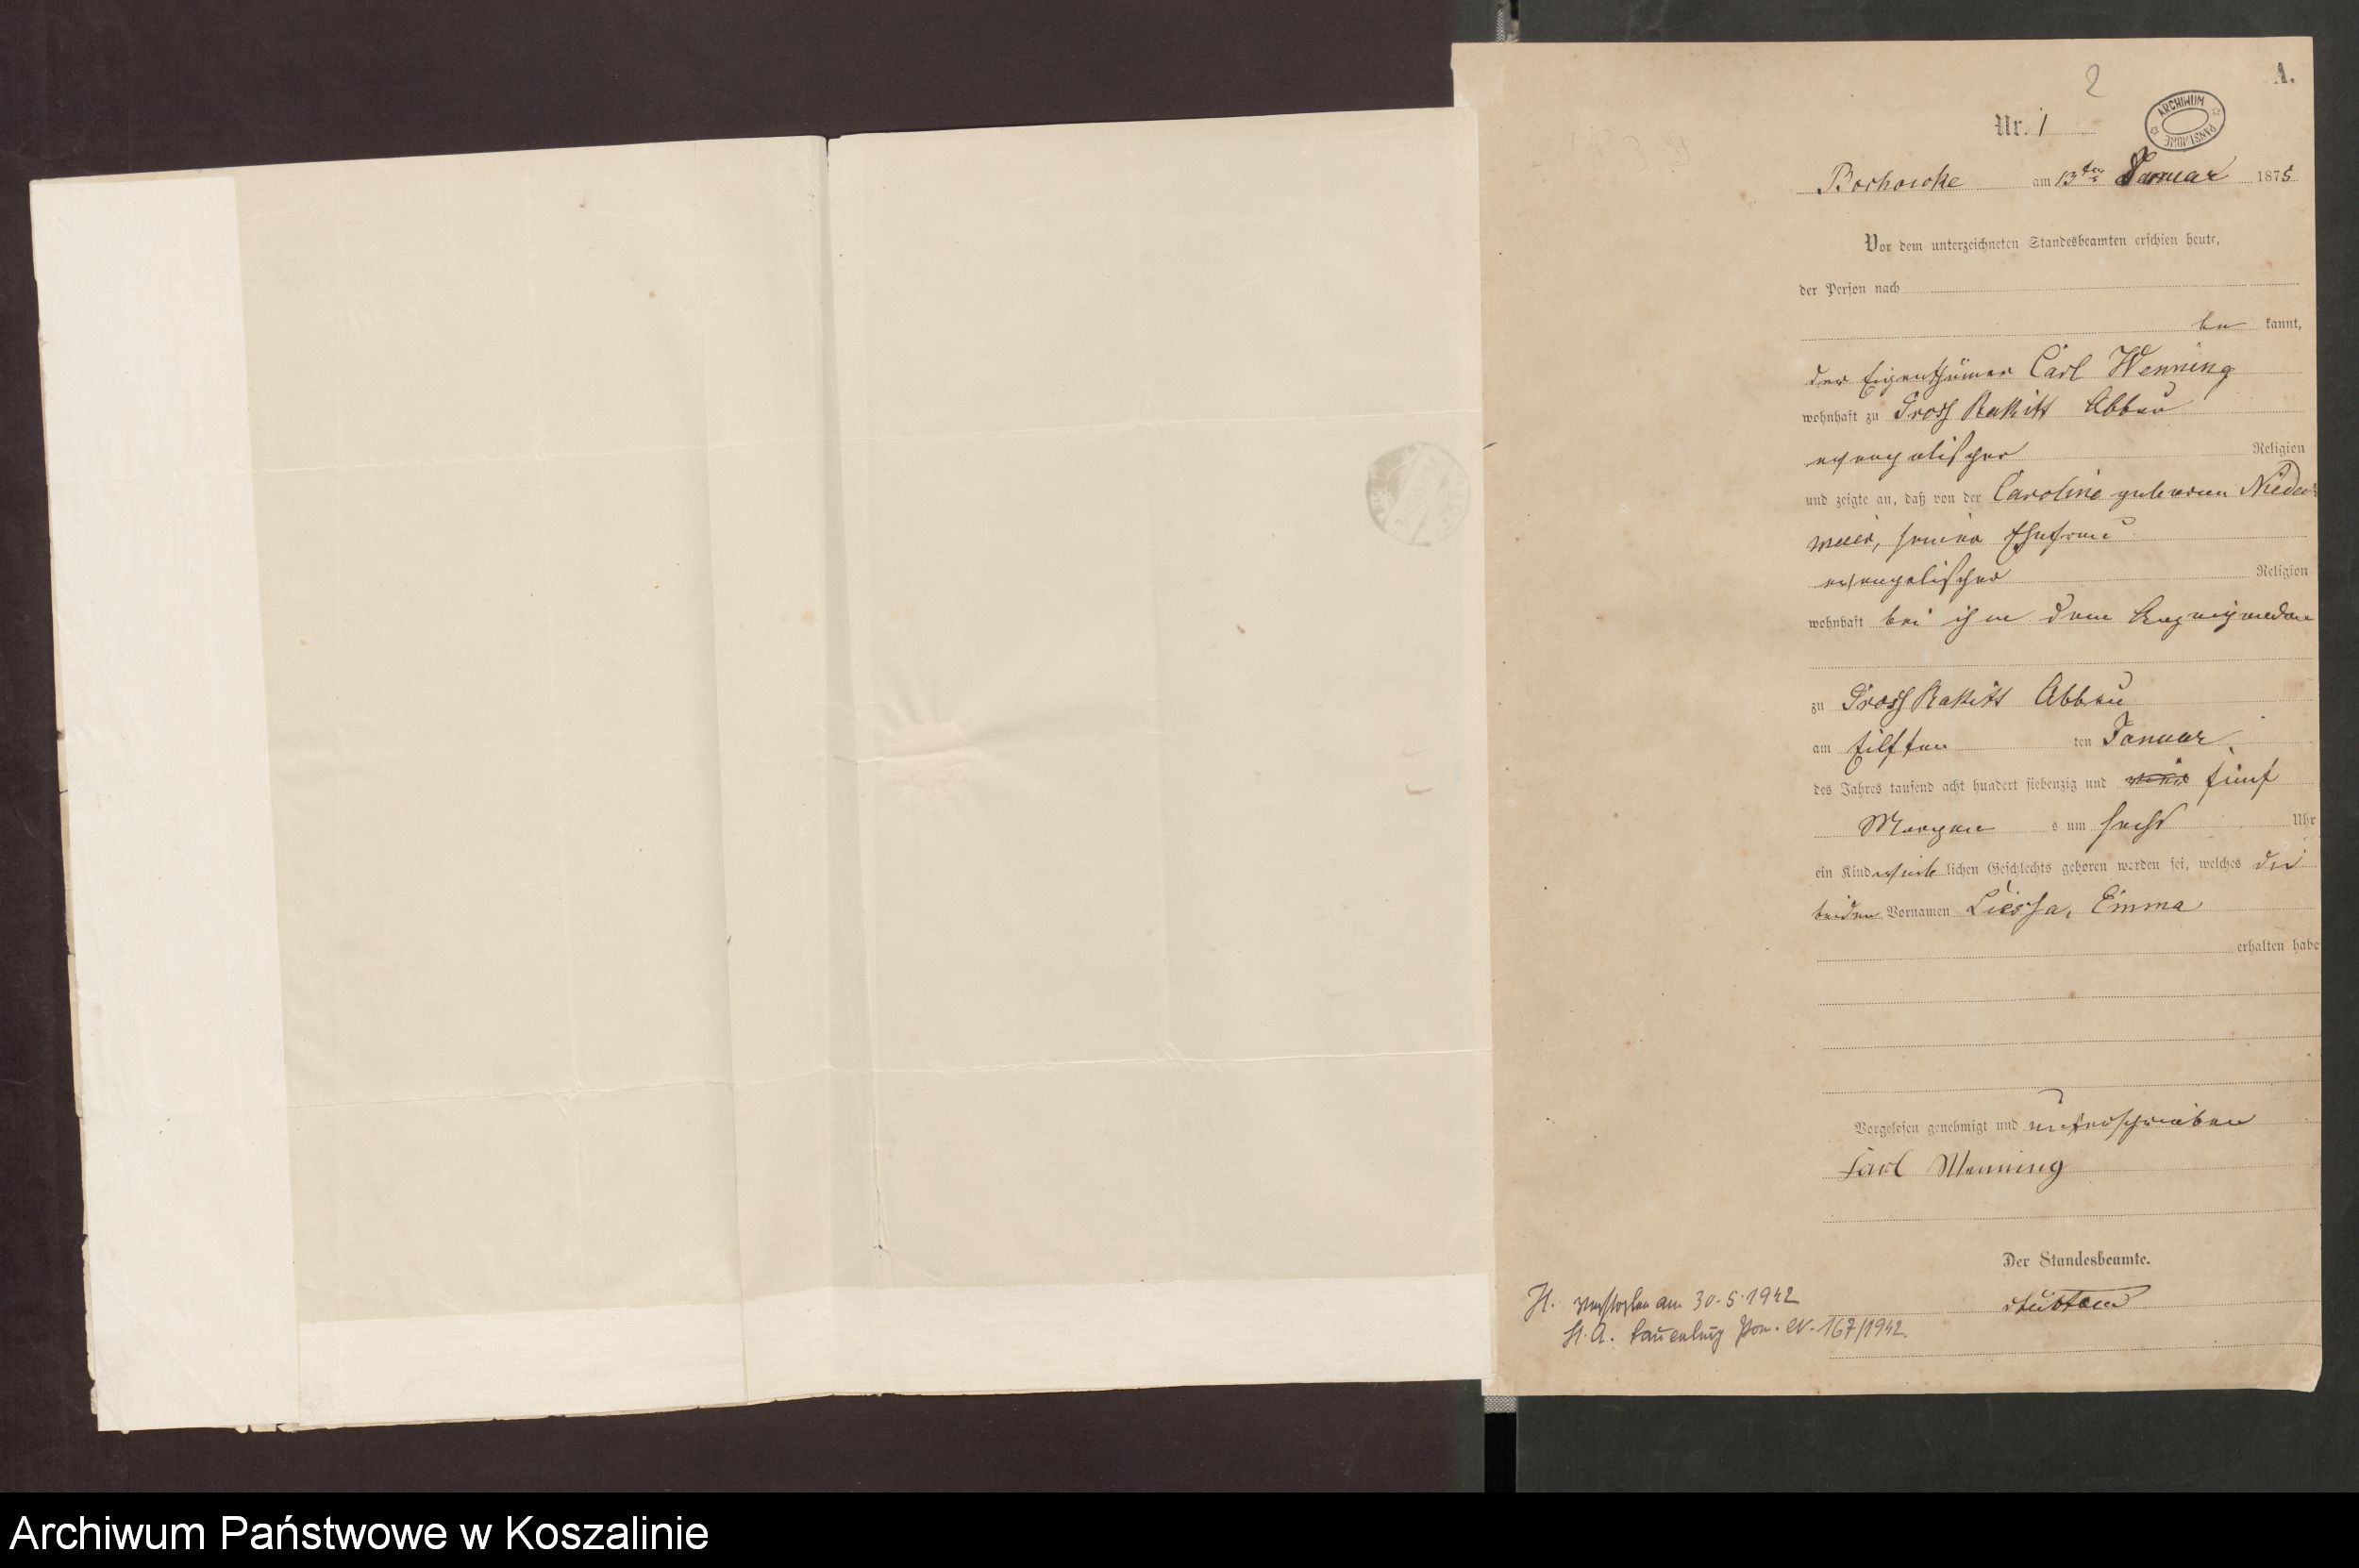 2
A.
Nr. 1
ARCHIWUM PAŃSTWOWE
Bochowke am 13ten Januar 1875
Vor dem unterzeichneten Standesbeamten erschien heute,
der Person nach
be kannt,
der Eigenthümer Carl Wenning
wohnhaft zu Gross Rakitt Abbau
evangelischer Religion
und zeigte an, daß von der Caroline geborenen Nieder-
meier, seiner Ehefrau
evangelischer Religion
wohnhaft bei ihm dem Anzeigenden
zu Gross Rakitt Abbau
am Eilften ten Januar
des Jahres tausend acht hundert siebenzig und fünf
Morgens um sechs Uhr
ein Kind weiblichen Geschlechts geboren worden sei, welches die
beiden Vornamen Emma
erhalten habe
Vorgelesen genehmigt und unterschrieben
Carl Wenning
Der Standesbeamte.
H. verstorben am 30.5.1942
St. A. Lauenburg Pom. N. 167/1942.
Archiwum Państwowe w Koszalinie